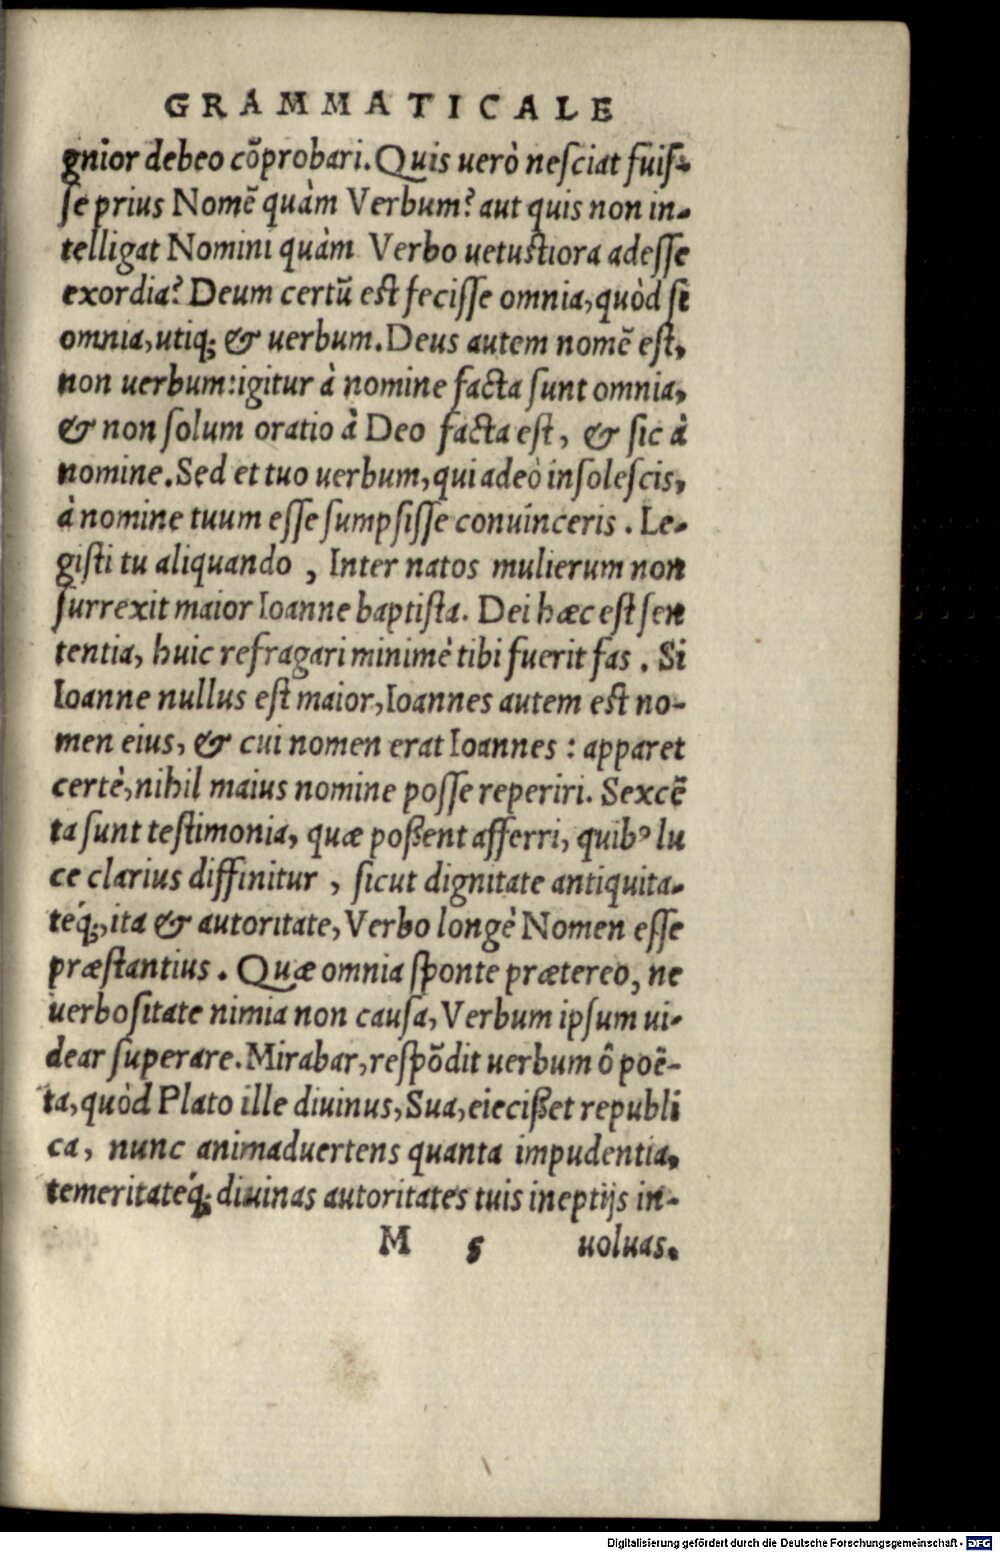 GRAMMATICALE
gnior debeo cõprobari. Quis uerò nesciat fuis-
se prius Nomẽ quàm Verbum? aut quis non in-
telligat Nomini quàm Verbo uetustiora adesse
exordia? Deum certũ est fecisse omnia, quòd si
omnia, utiq; & uerbum. Deus autem nomẽ est,
non uerbum: igitur à nomine facta sunt omnia,
& non solum oratio à Deo facta est, & sic à
nomine. Sed et tuo uerbum, qui adeò insolescis,
à nomine tuum esse sumpsisse conuinceris. Le-
gisti tu aliquando, Inter natos mulierum non
surrexit maior Ioanne baptista. Dei hæc est sen
tentia, huic refragari minimè tibi fuerit fas. Si
Ioanne nullus est maior, Ioannes autem est no-
men eius, & cui nomen erat Ioannes: apparet
certè, nihil maius nomine posse reperiri. Sexcẽ
ta sunt testimonia, quæ poßent afferri, quibꝰ lu
ce clarius diffinitur, sicut dignitate antiquita-
téq;, ita & autoritate, Verbo longè Nomen esse
præstantius. Quæ omnia sponte prætereo, ne
uerbositate nimia non causa, Verbum ipsum ui-
dear superare. Mirabar, respõdit uerbum ô poë-
ta, quòd Plato ille diuinus, Sua, eiecißet republi
ca, nunc animaduertens quanta impudentia,
temeritatéq; diuinas autoritates tuis ineptijs in-
M 5 uoluas.
Digitalisierung gefördert durch die Deutsche Forschungsgemeinschaft - DFG